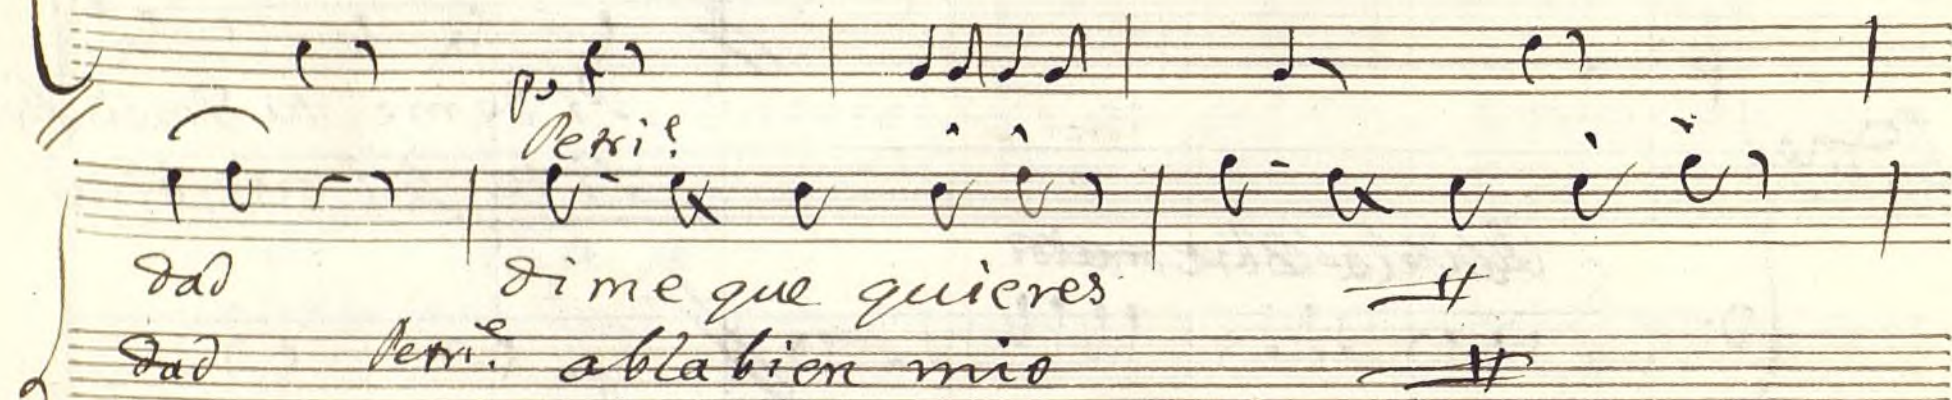 po
Petri.e
dad dime que quieres
dad Petri.e abla bien mio